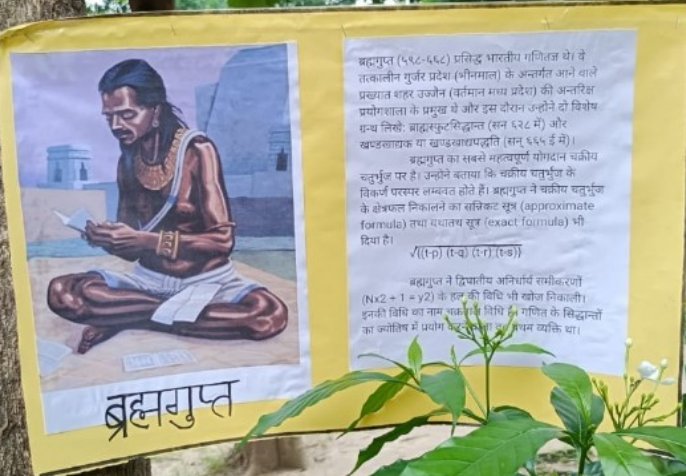 ब्रह्मगुप्त (५९८-६६८) प्रसिद्ध भारतीय गणितज्ञ थे। वे
तत्कालीन गुर्जर प्रदेश (भीनमाल) के अन्तर्गत आने वाले
प्रख्यात शहर उज्जैन (वर्तमान मध्य प्रदेश) की अन्तरिक्ष
प्रयोगशाला के प्रमुख थे और इस दौरान उन्होने दो विशेष
ग्रन्थ लिखे: ब्राह्मस्फुटसिद्धान्त (सन ६२८ में) और
खण्डखाद्यक या खण्डखाद्यपद्धति (सन् ६६५ ई में)।
ब्रह्मगुप्त का सबसे महत्वपूर्ण योगदान चक्रीय
चतुर्भुज पर है। उन्होने बताया कि चक्रीय चतुर्भुज के
विकर्ण परस्पर लम्बवत होते हैं। ब्रह्मगुप्त ने चक्रीय चतुर्भुज
के क्षेत्रफल निकालने का सन्निकट सूत्र (approximate
formula) तथा यथातथ सूत्र (exact formula) भी
दिया है।
√{(t-p) (t-q) (t-r) (t-s)}
ब्रह्मगुप्त ने द्विघातीय अनिर्धार्य समीकरणों
(Nx2 + 1 = y2) के हल की विधि भी खोज निकाली।
इनकी विधि का नाम विधि है। गणित के सिद्धान्तों
का ज्योतिष में प्रयोग प्रथम व्यक्ति था।
ब्रह्मगुप्त